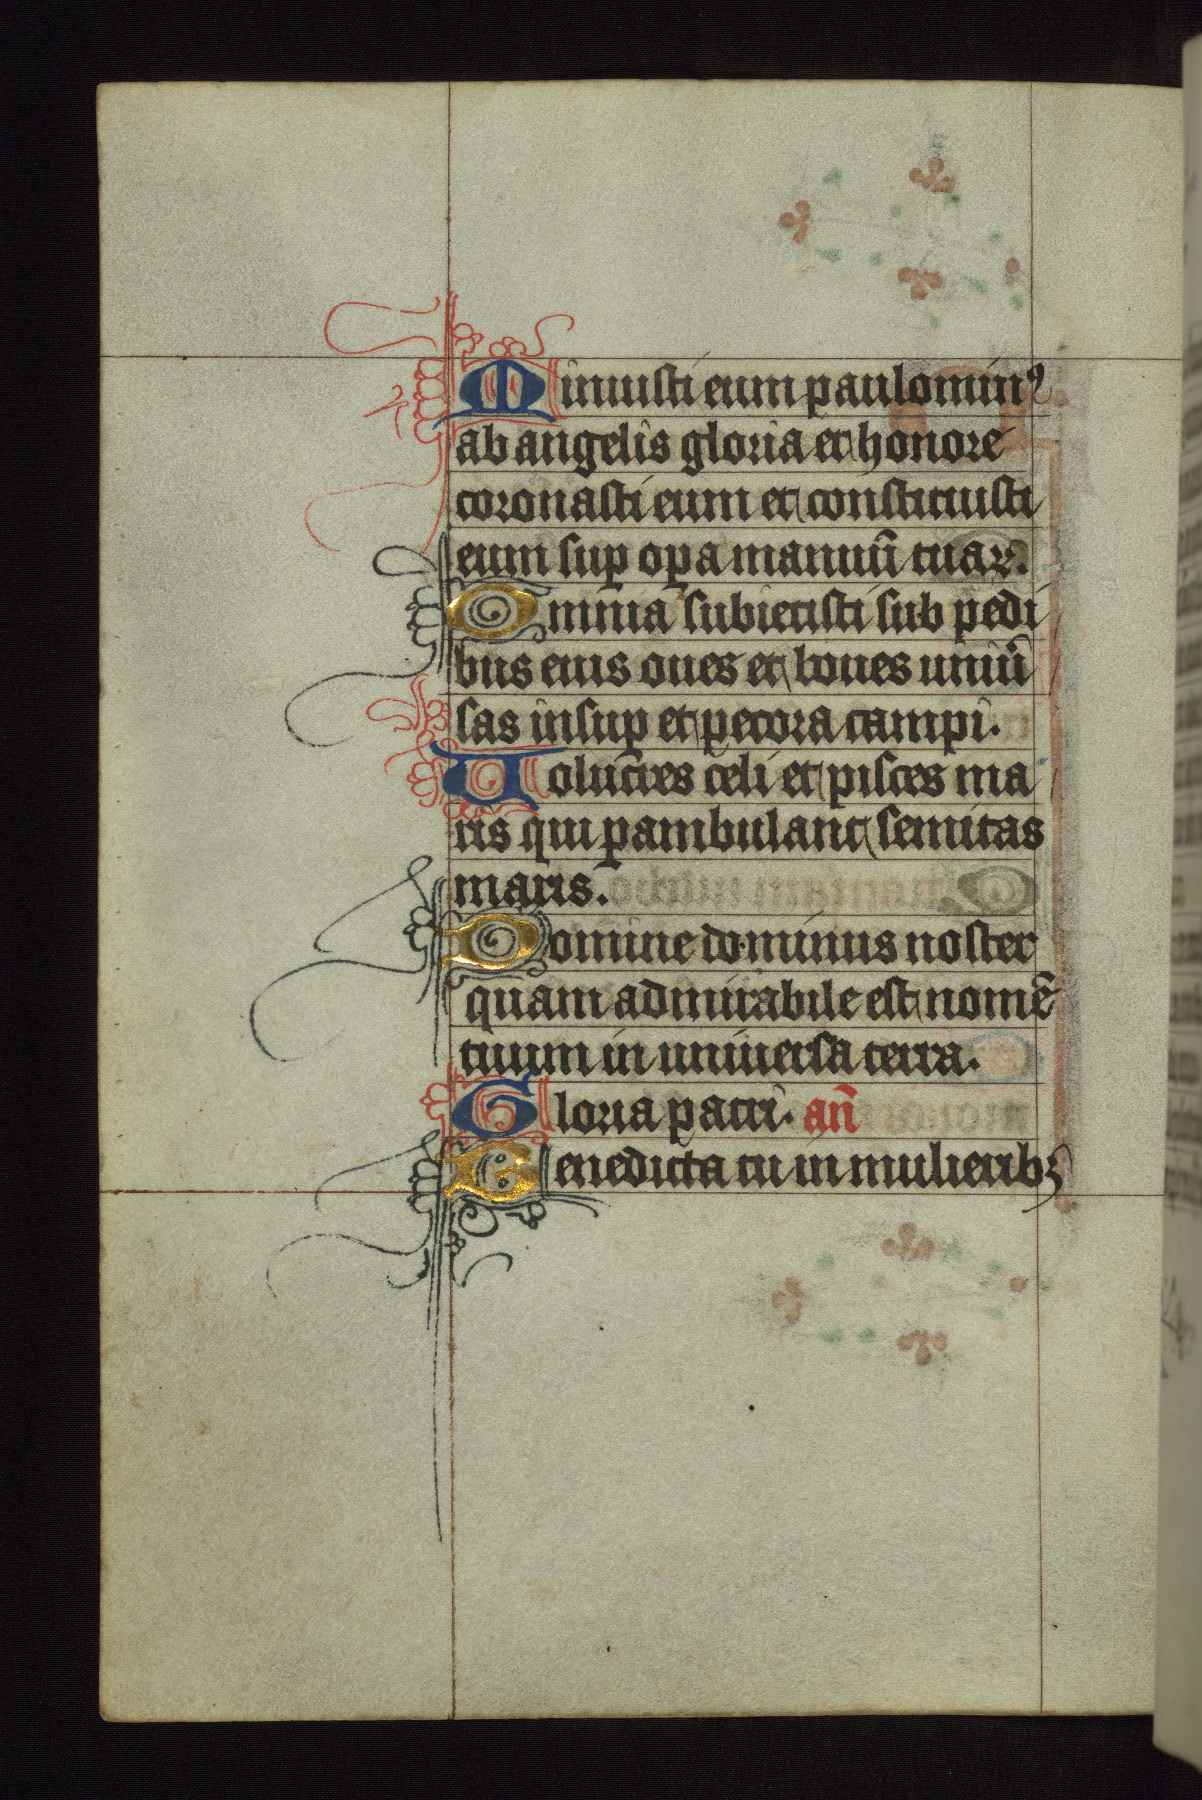 Minuisti eum paulominꝰ
ab angelis gloria et honore
coronasti eum et constituisti
eum suꝑ oꝑa manuū tuaꝝ.
Omnia subiecisti sub pedi
bus eius oues et boues uniū
sas insuꝑ et pecora campi.
Uolucres celi et pisces ma
ris qui ꝑambulant semitas
maris.
Domine dominus noster
quam admirabile est nomē
tuum in uniuersa terra.
Gloria patri. an̄
Benedicta tu in mulieribꝫ